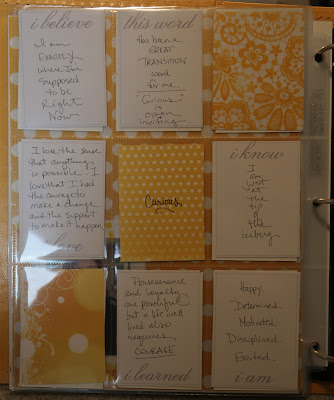 i believe
I am
EXACTLY
where I'm
supposed
to be
Right
Now
this word
Has been a
GREAT
TRANSITION
word
for me.
"Curious"
is
open
inviting.
I love the sense
that anything
is possible. I
love that I had
the
to
make a change
and the support
to make it happen.
i love
Curious.
i know
I
am
just
at
the
tip
of
the
iceberg.
Perseverance
and loyalty
are powerful
but a life well
lived also
requires
COURAGE
i learned
Happy
Determined
Motivated
Disciplined
Excited.
i am